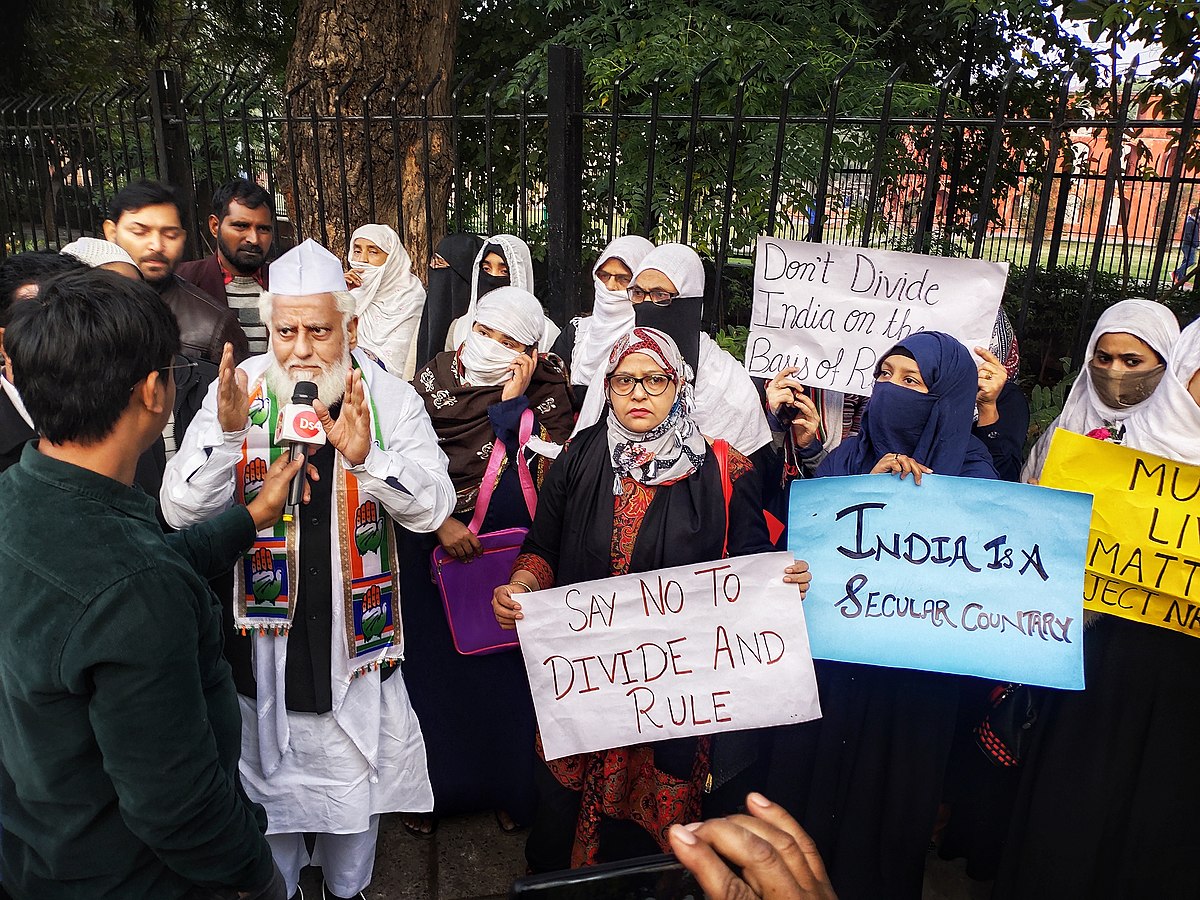 Don't Divide
India on the
Basis of
SAY NO TO
DIVIDE AND
RULE
INDIA IS A
SECULAR COUNTARY
MATT
JECT
Ds4